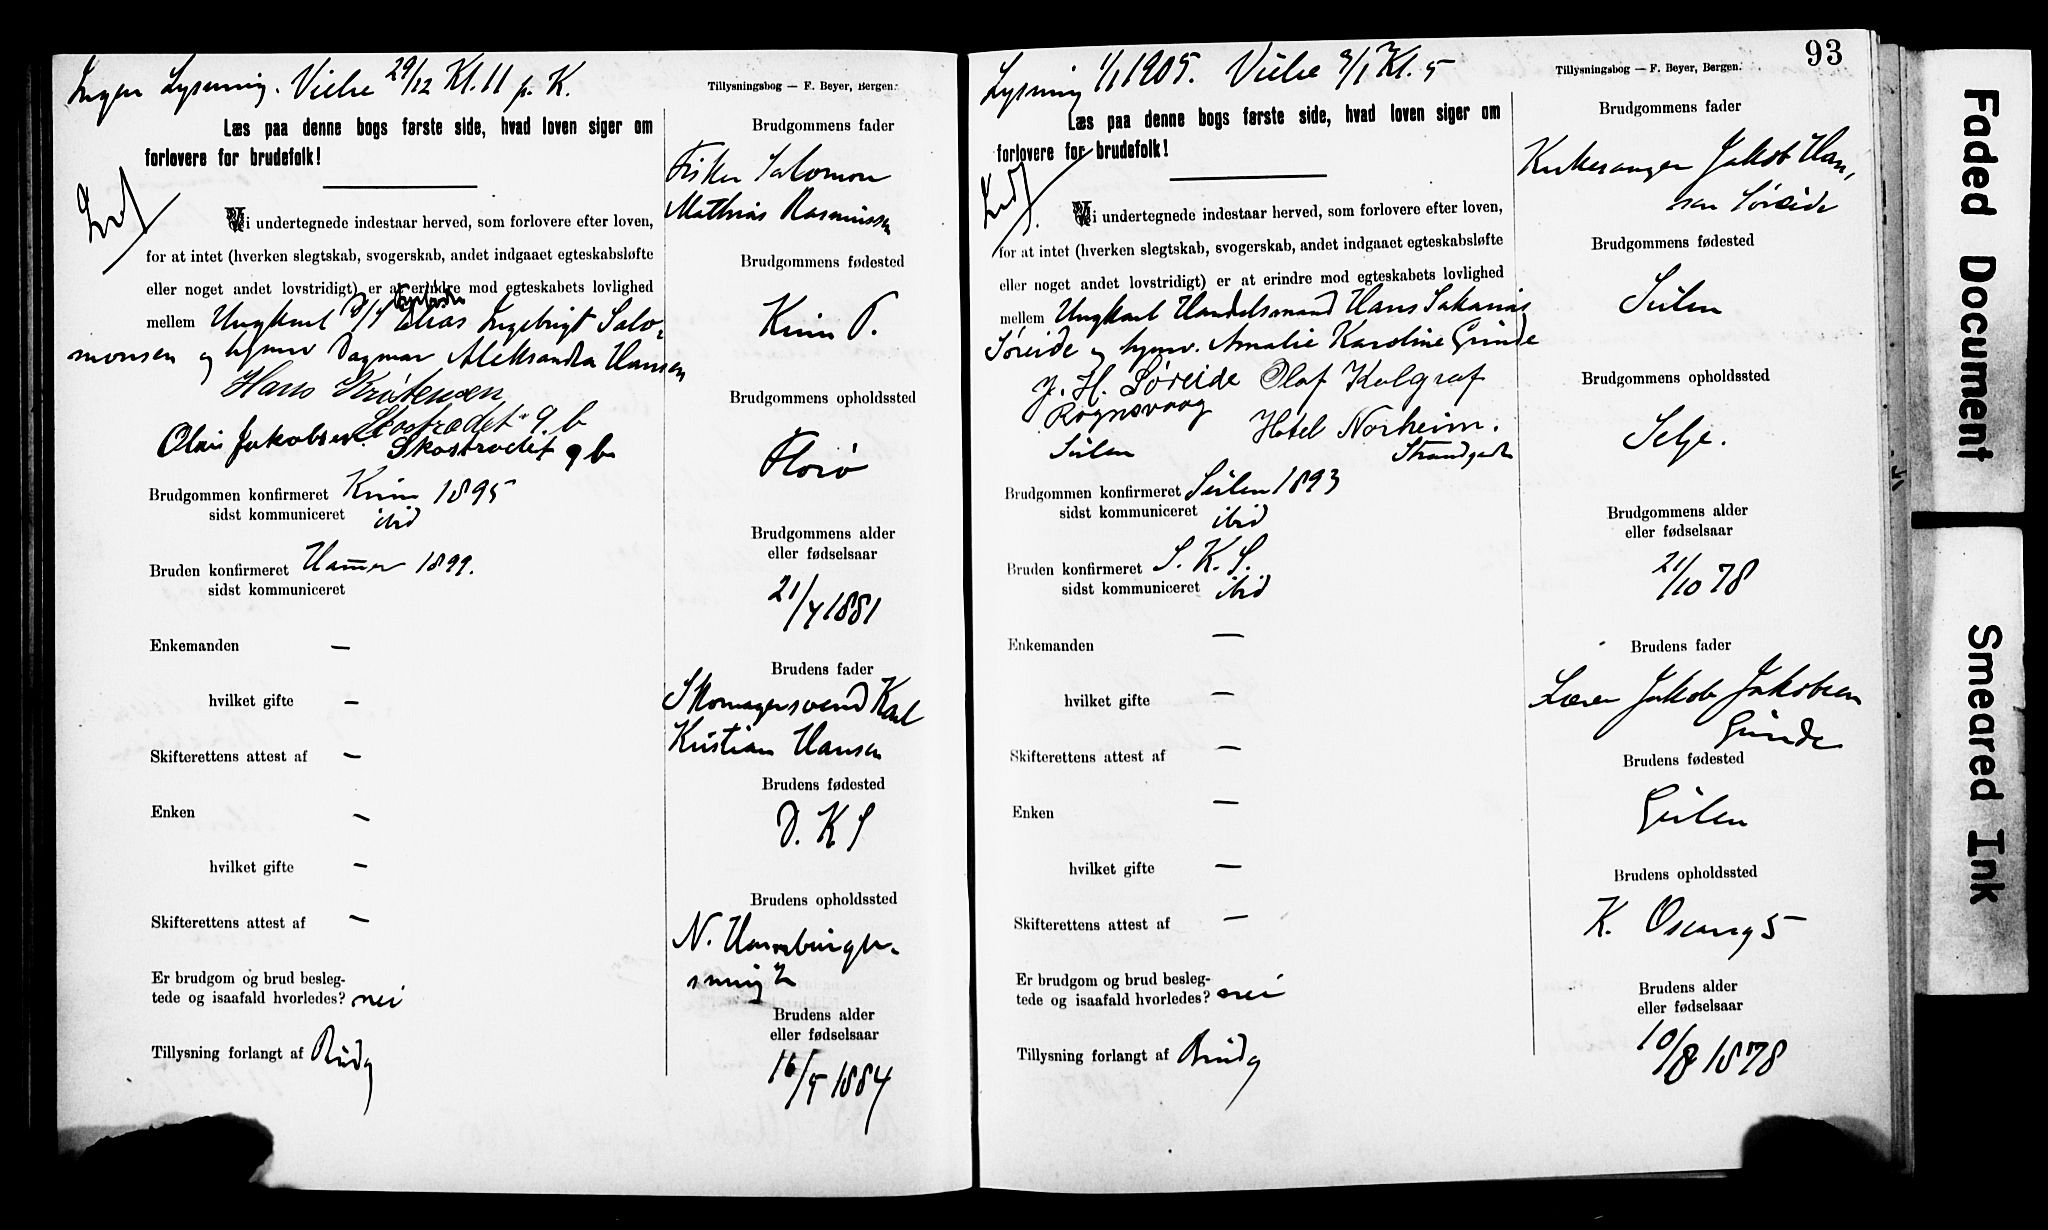 Ingen Lysning. Vielse 29/12 Kl. 11 p. K.
Tillysningsbog — F. Beyer, Bergen.
Læs paa denne bogs første side, hvad loven siger om
forlovere for brudefolk!
Vi undertegnede indestaar herved, som forlovere efter loven,
for at intet (hverken slegtskab, svogerskab, andet indgaaet egteskabsløfte
eller noget andet lovstridigt) er at erindre mod egteskabets lovlighed
mellem Ungkarl Elias Ingebrigt Salo-
monsen og Dagmar Aleksandra Hansen
Hans Kristensen
Skostrædet 9 b
Olai Jakobsen Skostrædet 9 b
Brudgommen konfirmeret Kinn 1895
sidst kommuniceret ibid
Bruden konfirmeret Hammer 1899.
sidst kommuniceret
Enkemanden —
hvilket gifte —
Skifterettens attest af —
Enken —
hvilket gifte —
Skifterettens attest af —
Er brudgom og brud besleg-
tede og isaafald hvorledes? nei
Tillysning forlangt af Brudg
Brudgommens fader
Fisker Salomon
Mathias Rasmussen
Brudgommens fødested
Kinn P.
Brudgommens opholdssted
Florø
Brudgommens alder
eller fødselsaar
21/4 1881
Brudens fader
Skomagersvend Karl
Kristian Hansen
Brudens fødested
D. K S
Brudens opholdssted
N.
Brudens alder
eller fødselsaar
16/5 1884
Lysning 1/1 1905. Vielse 9/1 Kl. 5
Tillysningsbog — F. Beyer, Bergen.
93
Læs paa denne bogs første side, hvad loven siger om
forlovere for brudefolk!
Vi undertegnede indestaar herved, som forlovere efter loven,
for at intet (hverken slegtskab, svogerskab, andet indgaaet egteskabsløfte
eller noget andet lovstridigt) er at erindre mod egteskabets lovlighed
mellem Ungkarl Handelsmand Hans Sakarias
Søreide og Amalie Karoline Grinde
J. H. Søreide Olaf Kalgraf
Rognsvaag Hotel Norheim.
Sülen Strandgaden
Brudgommen konfirmeret Sülen 1893
sidst kommuniceret ibid
Bruden konfirmeret S. K. S.
sidst kommuniceret ibid
Enkemanden —
hvilket gifte —
Skifterettens attest af —
Enken —
hvilket gifte —
Skifterettens attest af —
Er brudgom og brud besleg-
tede og isaafald hvorledes? nei
Tillysning forlangt af Brudg
Brudgommens fader
Kirkesanger Jakob Han-
sen Søreide
Brudgommens fødested
Sülen
Brudgommens opholdssted
Selje.
Brudgommens alder
eller fødselsaar
21/10 78
Brudens fader
Lærer Jakob Jakobsen
Grinde
Brudens fødested
Gulen
Brudens opholdssted
K. Oscarsg 5
Brudens alder
eller fødselsaar
10/8 1878
Faded Document
Smeared Ink